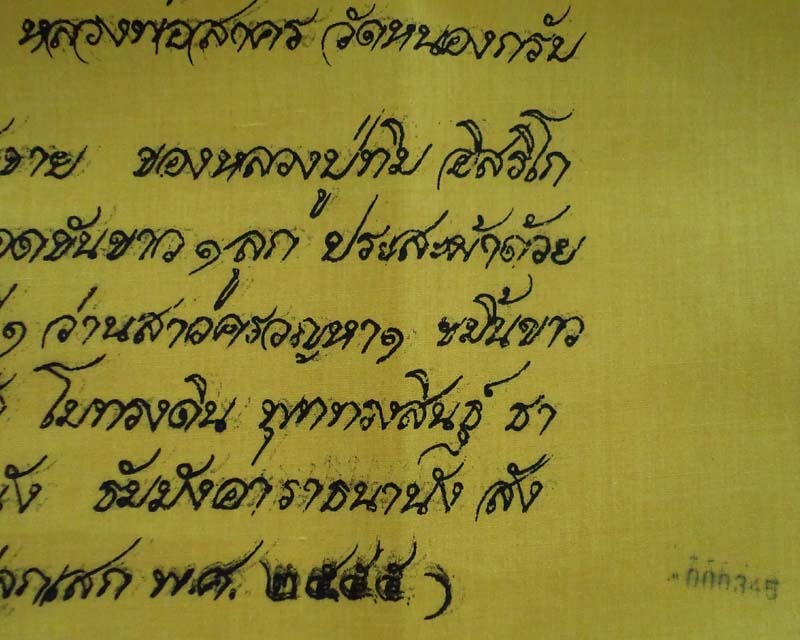 หลวงพ่อสาคร วัดหนองกรับ
ชาย ของหลวงปู่ทิม อิสริโก
อดชันขาว ๑ ลูก ประสะผ้าด้วย
๑ ว่านสาวครวญหา ๑ ขมิ้นขาว
โมทรงดิน พุททรงสินธุ์ ธา
นัง ธัมมังอาราธนานัง สัง
ปลุกเสก พ.ศ. ๒๕๕๕ )
000345